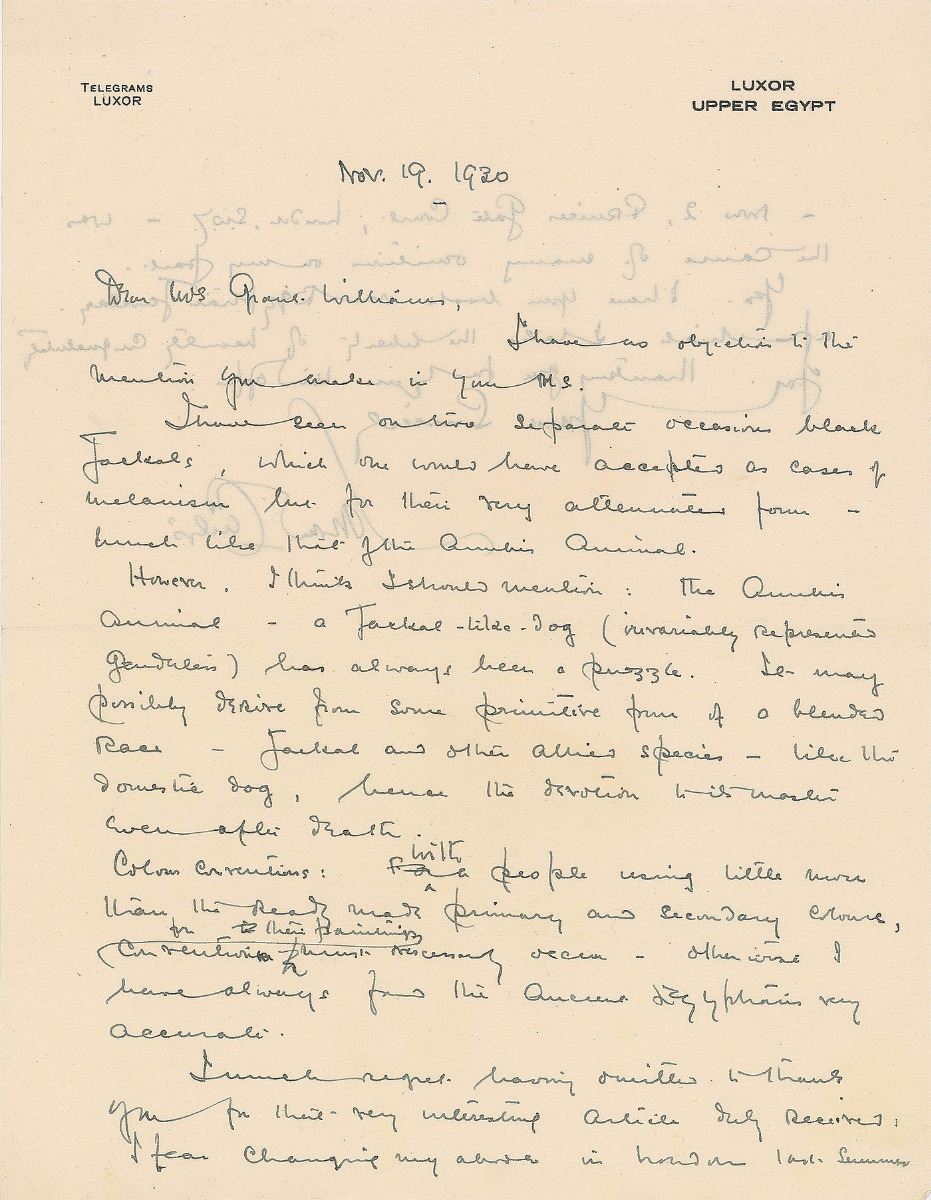 TELEGRAMS
LUXOR
LUXOR
UPPER EGYPT
Nov. 19. 1930
Dear Mrs Williams,
I have no objection to the
mention you make in your MS.
I have seen on two separate occasions black
Jackals, which one would have accepted as cases of
melanism but for their very attenuated form –
much like that of the Anubis Animal.
However, I think I should mention: the Anubis
Animal – a Jackal-like-dog (invariably represented
) has always been a puzzle. It may
possibly derive from some primitive form of a blended
Race – Jackal and other allied species – like the
domestic dog, hence the devotion to its master
even after death.
Colour conventions: with a people using little more
than the ready made primary and secondary colours,
for their paintings
Conventions must necessarily occur – otherwise I
have always found the Ancient Egyptians very
accurate.
I much regret having omitted to thank
you for their very interesting article duly received:
I fear changing my abode in London last Summer